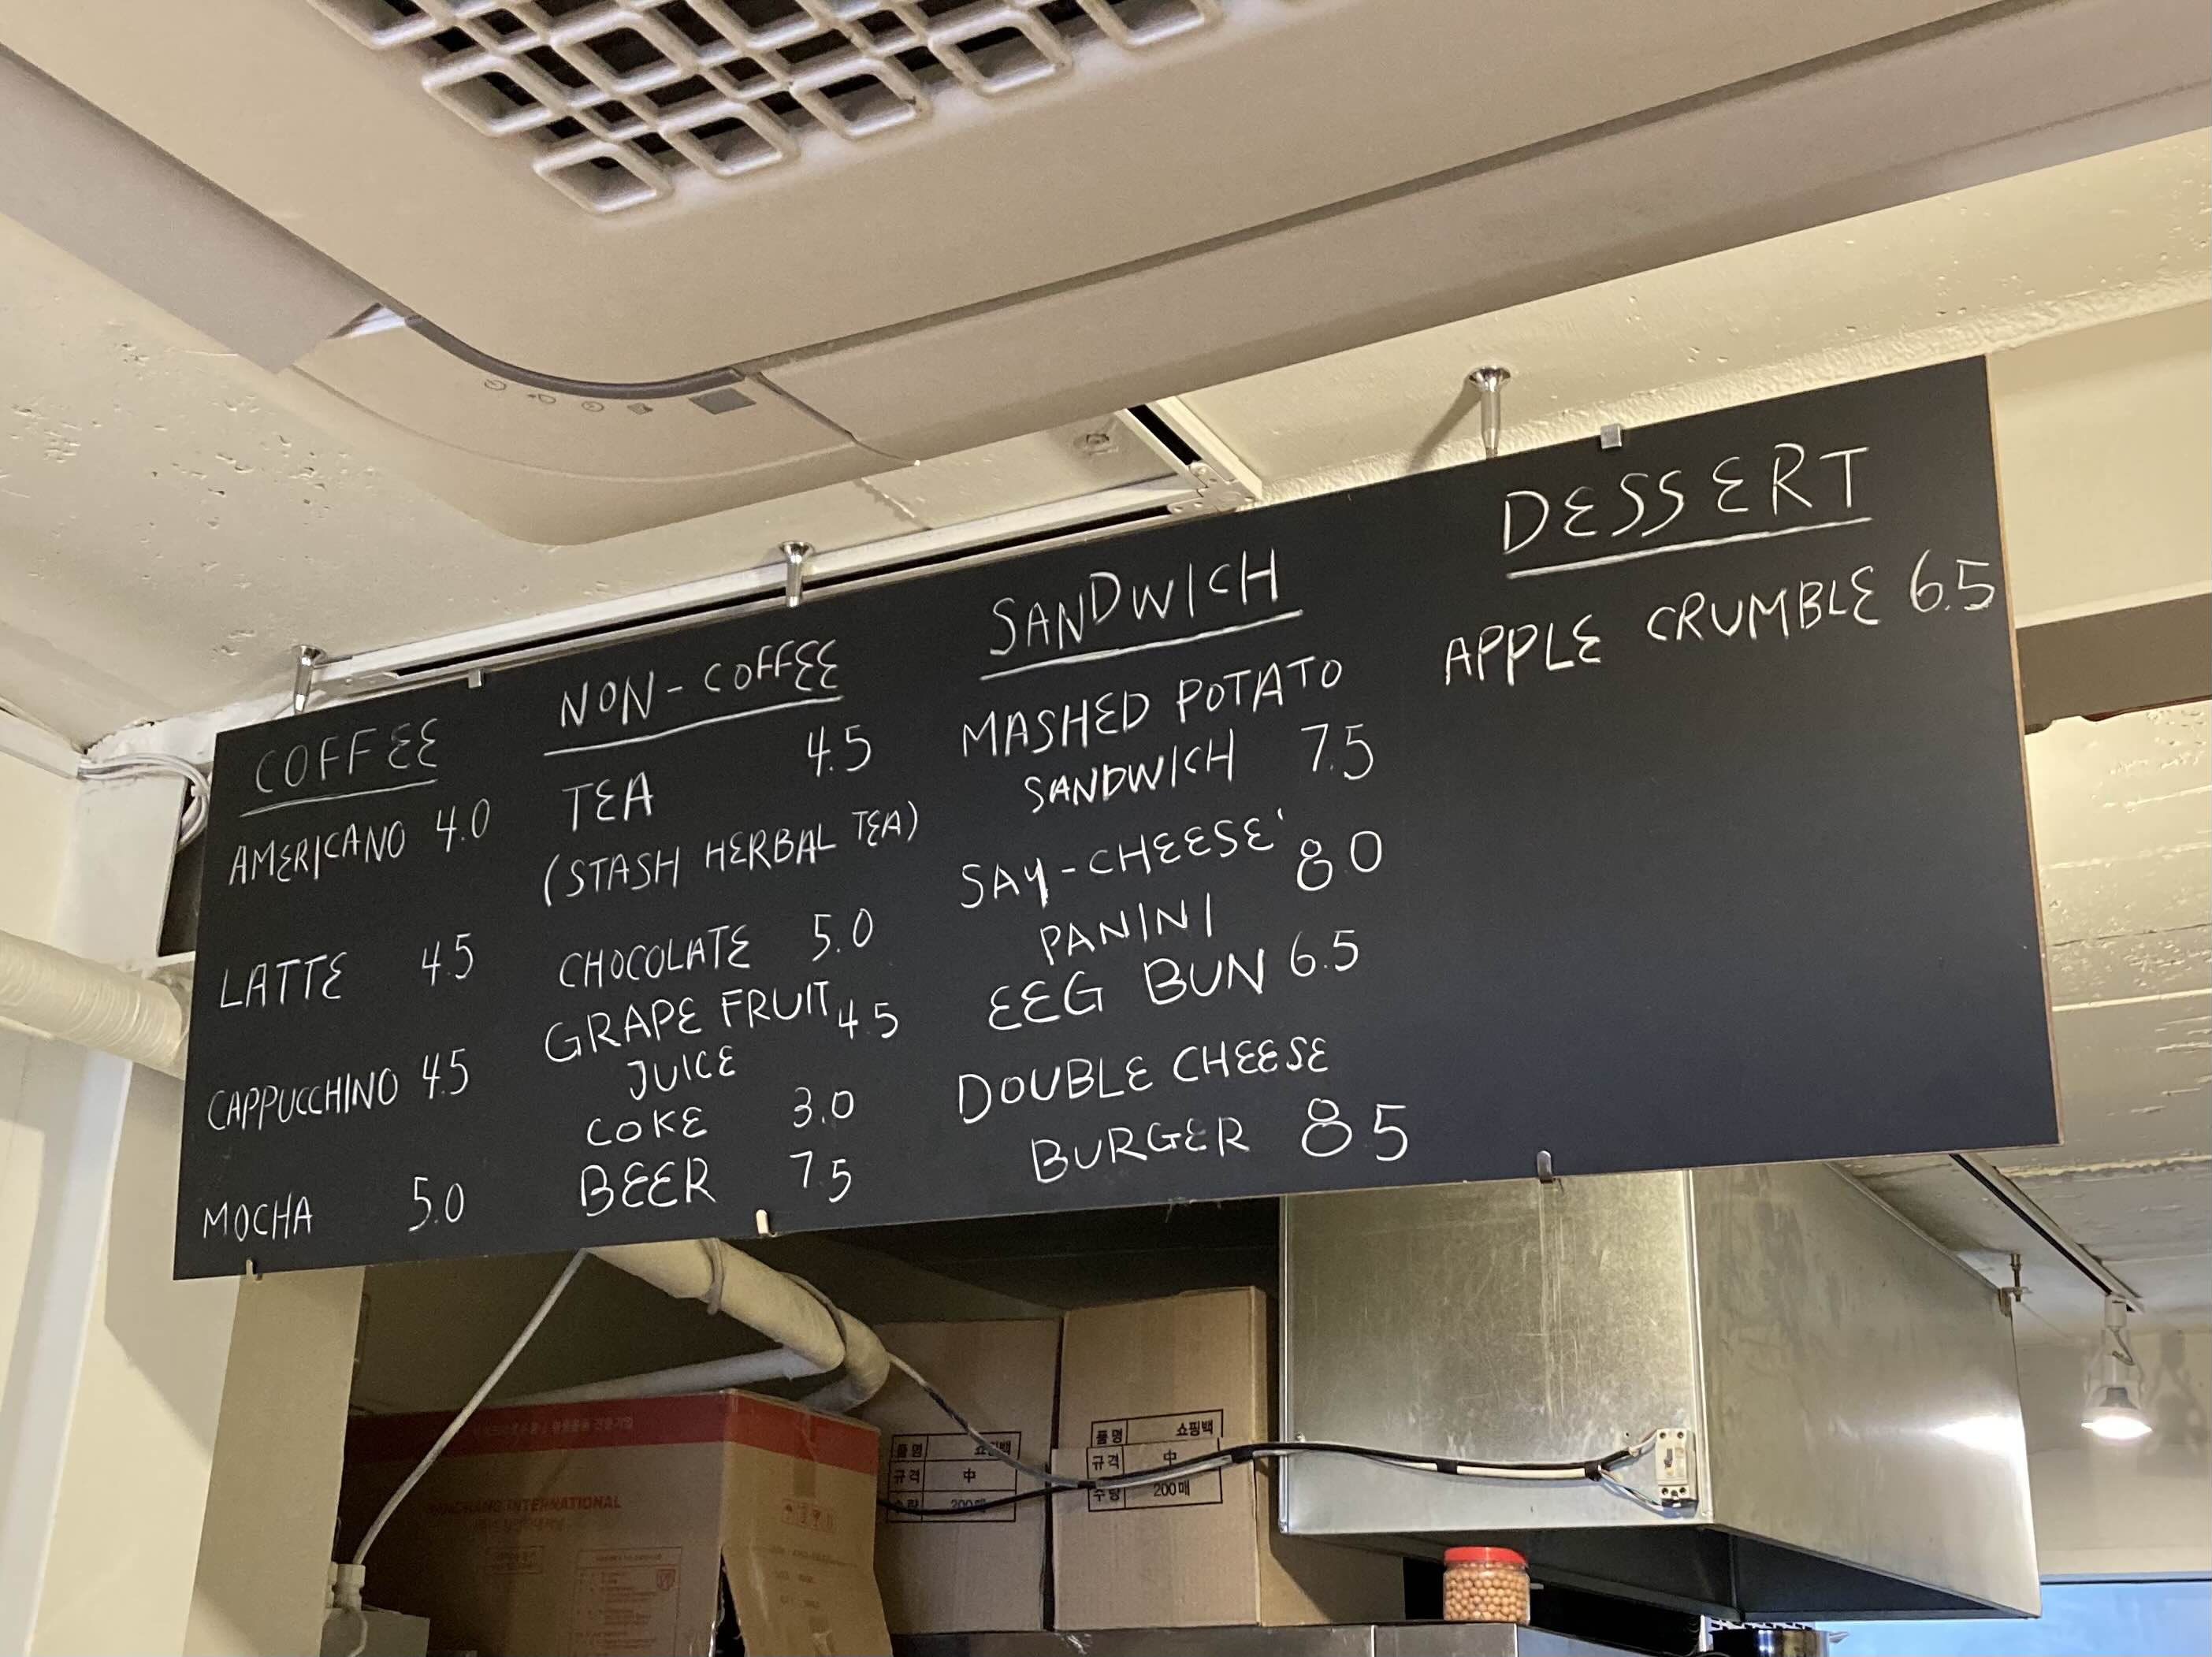 COFFEE
AMERICANO 4.0
LATTE 4.5
CAPPUCCHINO 4.5
MOCHA 5.0
NON-COFFEE
TEA 4.5
(STASH HERBAL TEA)
CHOCOLATE 5.0
GRAPE FRUIT 4.5
JUICE
COKE 3.0
BEER 7.5
SANDWICH
MASHED POTATO
SANDWICH 7.5
SAY-CHEESE' 8.0
PANINI
EEG BUN 6.5
DOUBLE CHEESE
BURGER 8.5
DESSERT
APPLE CRUMBLE 6.5
INTERNATIONAL
품명 쇼핑백
규격 中
수량 200매
품명 쇼핑백
규격 中
수량 200매